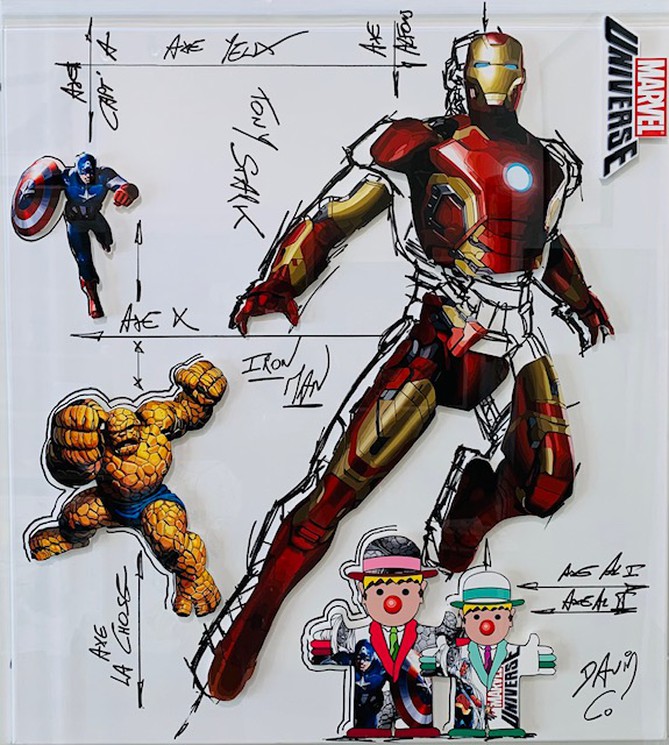 AXE YEUX
AXE
AXE
MARVEL
UNIVERSE
TONY STARK
AXE X
IRON
MAN
AXE
LA CHOSE
AXE AL I
AXE AL II
MARVEL
UNIVERSE
DAVID
Co